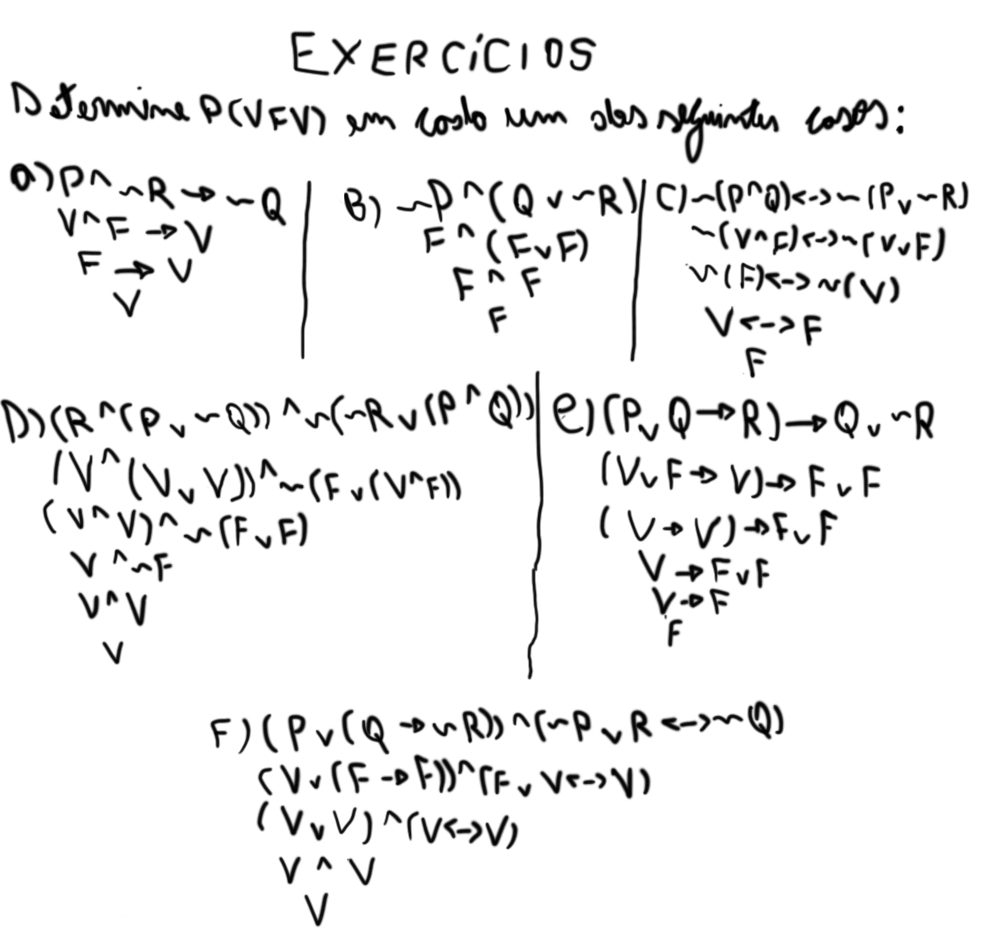 EXERCÍCIOS
Determine P(VFV) em cada um dos seguintes casos:
a) P ^ ~R → ~Q
V ^ F → V
F → V
V
B) ~P ^ (Q v ~R)
F ^ (F v F)
F ^ F
F
C) ~(P ^ Q) <-> ~(P v ~R)
~(V ^ F) <-> ~(V v F)
~(F) <-> ~(V)
V <-> F
F
D) (R ^ (P v ~Q)) ^ ~(~R v (P ^ Q))
(V ^ (V v V)) ^ ~(F v (V ^ F))
(V ^ V) ^ ~(F v F)
V ^ ~F
V ^ V
V
e) (P v Q → R) → Q v ~R
(V v F → V) → F v F
(V → V) → F v F
V → F v F
V → F
F
F) (P v (Q → ~R)) ^ (~P v R <-> ~Q)
(V v (F → F)) ^ (F v V <-> V)
(V v V) ^ (V <-> V)
V ^ V
V